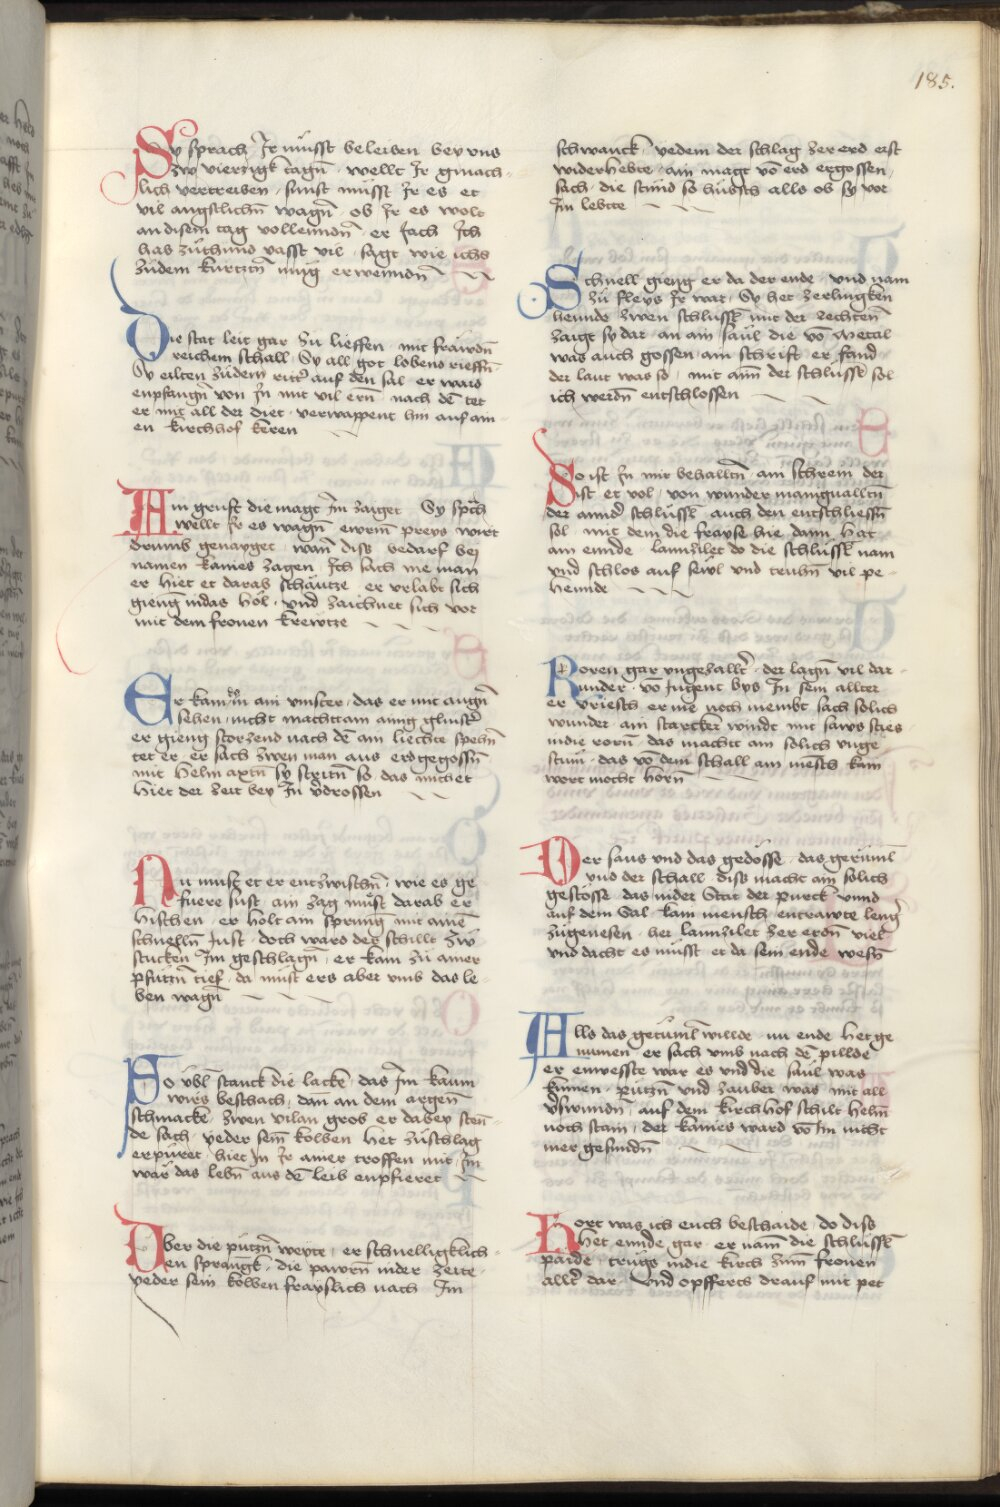 185.
Sy sprach Ir müsst beleiben bey vns
zw vierzigk tagn̄ · wellt Ir gmach-
lich vertreiben · sunst müsst Ir es et
vil angstlichn̄ wagn̄ · ob Ir es wolt
an disem tag vollenndn̄ · er sach Ich
hab zuthund vasst vil · sagt wie ichs
zudem kürtztn̄ müg erwenndn̄
Die stat leit gar zu lieffen · mit fräwdn̄
reichem schall · Sy all got lobens rieffn̄
Sy eilten zudem rittr̄ auf den sal · er wars
enpfangn̄ von In mit vil ern̄ · nach dē tet
er mit all der diet · verwappent hin auf ain-
en kirchhof keren
Ain gruft die magt Im zaiget · Sy sp̄ch
wellt Ir es wagn̄ ewrm̄ preys wirt
drumb genayget · wan̄ diss bedarf bej
namen kaines zagen · Ich sach nie man
er hiet et darab schäutze · er vrlabt sich
gienḡ indas hol · vnd zaichnet sich vor
mit dem fronen krewtze
Er kam in ain vinster · das er mit augn̄
sehen · nicht macht am ainig glinstr̄
er gieng storzend nach dē am liechte spehn̄
tet er · er sach zwen man aus erdgegossn̄
mit helm axtn̄ sy stritn̄ so das mich et
hiet der zeit bey In v̄drossen
Nu must et er entzwischn̄ · wie es ge
fuere sust · ain zag müst darab er
hischen · er holt am sprunḡ mit ainē
schnelln̄ Just · doch ward der schillt zw
stucken Im geschlagn̄ · er kam zu ainer
pfützn̄ tief · da must ers aber vmb das le-
ben wagn̄
So vbl̄ stanck die lacke · das Im kaum
wirs beschach · dan̄ an dem argen̄
schmacke · zwen vilan grob er dabey sten̄-
de sach · yeder sein̄ kolben het zuschlag
erpüret · hiet In Ir ainer troffen mit · Im
wär das lebn̄ aus dē leib enpfieret
Vber die pützn̄ weyte · er schnelligklich-
en sprangk · die pawrn̄ inder zeite ·
yeder sein kolben frayslich nach Im
schwanck · yedem der schlag zer erd erst
widerhebte · ain magt vō erd ergossen
sach · die stund so hübsch alls ob sy vor
Im lebte
Schnell gieng er da der ende · vnd nam
zu fleys Ir war · Sy het zerlingken
hennde zwen schlüssl̄ mit der rechten̄
zaigt sy dar · an ain säul die vō Metal
was auch gossen · ain schrift er fand
der laut was so · mit aim̄ der schlüssl̄ sol
ich werdn̄ entschlossen
So ist In mir behalltn̄ · ain schrein der
ist et vol · von wunder manigualltn̄
der annd̄ schlüssl̄ auch den entschliessn̄
sol · mit dem die frayse hie dann hat
ain ennde · lannzilet do die schlüssl̄ nam
vnd schlos auf sewl vnd truhn̄ vil pe-
hennde
Roren gar vngezallt̄ · der lagn̄ vil dar-
vnder · vō Jugent bys In sein allter
er vriesch er nie noch nembt sach solich
wunder · ain starcker windt mit saws sties
indie rorn̄ · das macht ain solich vnge
stum · das vō dem schall am mēsch kam
wort mocht horn̄
Der saus vnd das gedösse · das gerüml̄
vnd der schall · diss macht ain solich
gestösse · das inder Stat der purck vnnd
auf dem Sal · kam mensch entrawte lenḡ
zugenesen · her lannzilet zer erdn̄ viel
vnd dacht es müsst et da sein ende wesn̄
Alls das getüml̄ willde · nu ende het ge
numen · er sach vmb nach dē pillde
er enwesste war es vnd die säul was
kumen · Pützn̄ vnd zauber was mit all
v̄swundn̄ · auf dem kirchhof schilt helm̄
noch stain · der kaines ward vō Im nicht
mer gefundn̄
Hort was ich euch beschaide · do diss
het ennde gar · er nam̄ die schlüssl̄
paide · trugs indie kirch zum̄ fronen
allt̄ dar · Vnd opfferts drauf mit pet